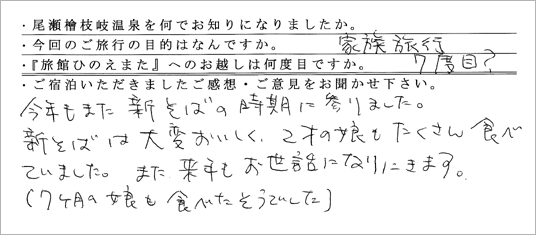 ・尾瀬檜枝岐温泉を何でお知りになりましたか。
・今回のご旅行の目的はなんですか。 家族旅行
・『旅館ひのえまた』へのお越しは何度目ですか。 7度目?
・ご宿泊いただきましたご感想・ご意見をお聞かせ下さい。
今年もまた 新そばの時期に参りました。
新そばは大変おいしく、2才の娘もたくさん食べ
ていました。また 来年もお世話になりにきます。
(7ヶ月の娘も食べたそうでした)